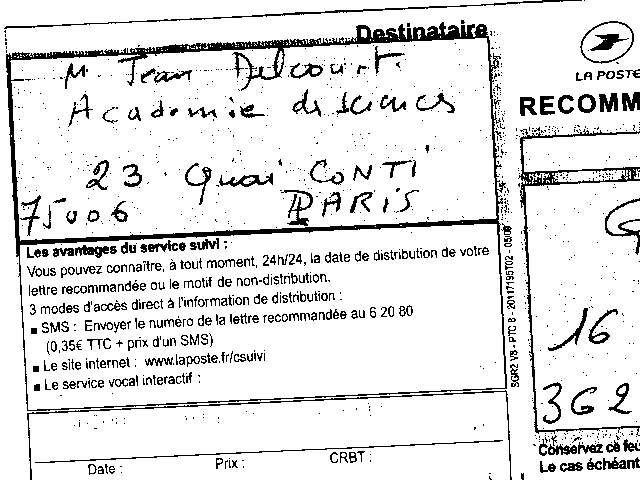 Destinataire
M. Jean Delcourt.
Academie de sciences
23 Quai CONTI
75006 PARIS
Les avantages du service suivi :
Vous pouvez connaître, à tout moment, 24h/24, la date de distribution de votre
lettre recommandée ou le motif de non-distribution.
3 modes d'accès direct à l'information de distribution :
■ SMS : Envoyer le numéro de la lettre recommandée au 6 20 80
(0,35€ TTC + prix d'un SMS)
■ Le site internet : www.laposte.fr/csuivi
■ Le service vocal interactif :
Date : Prix : CRBT :
SGR2 V8 - PTC 8 - 20117195T02 - 05/09
LA POSTE
RECOMM
G
16
362
Conservez ce feu
Le cas échéant